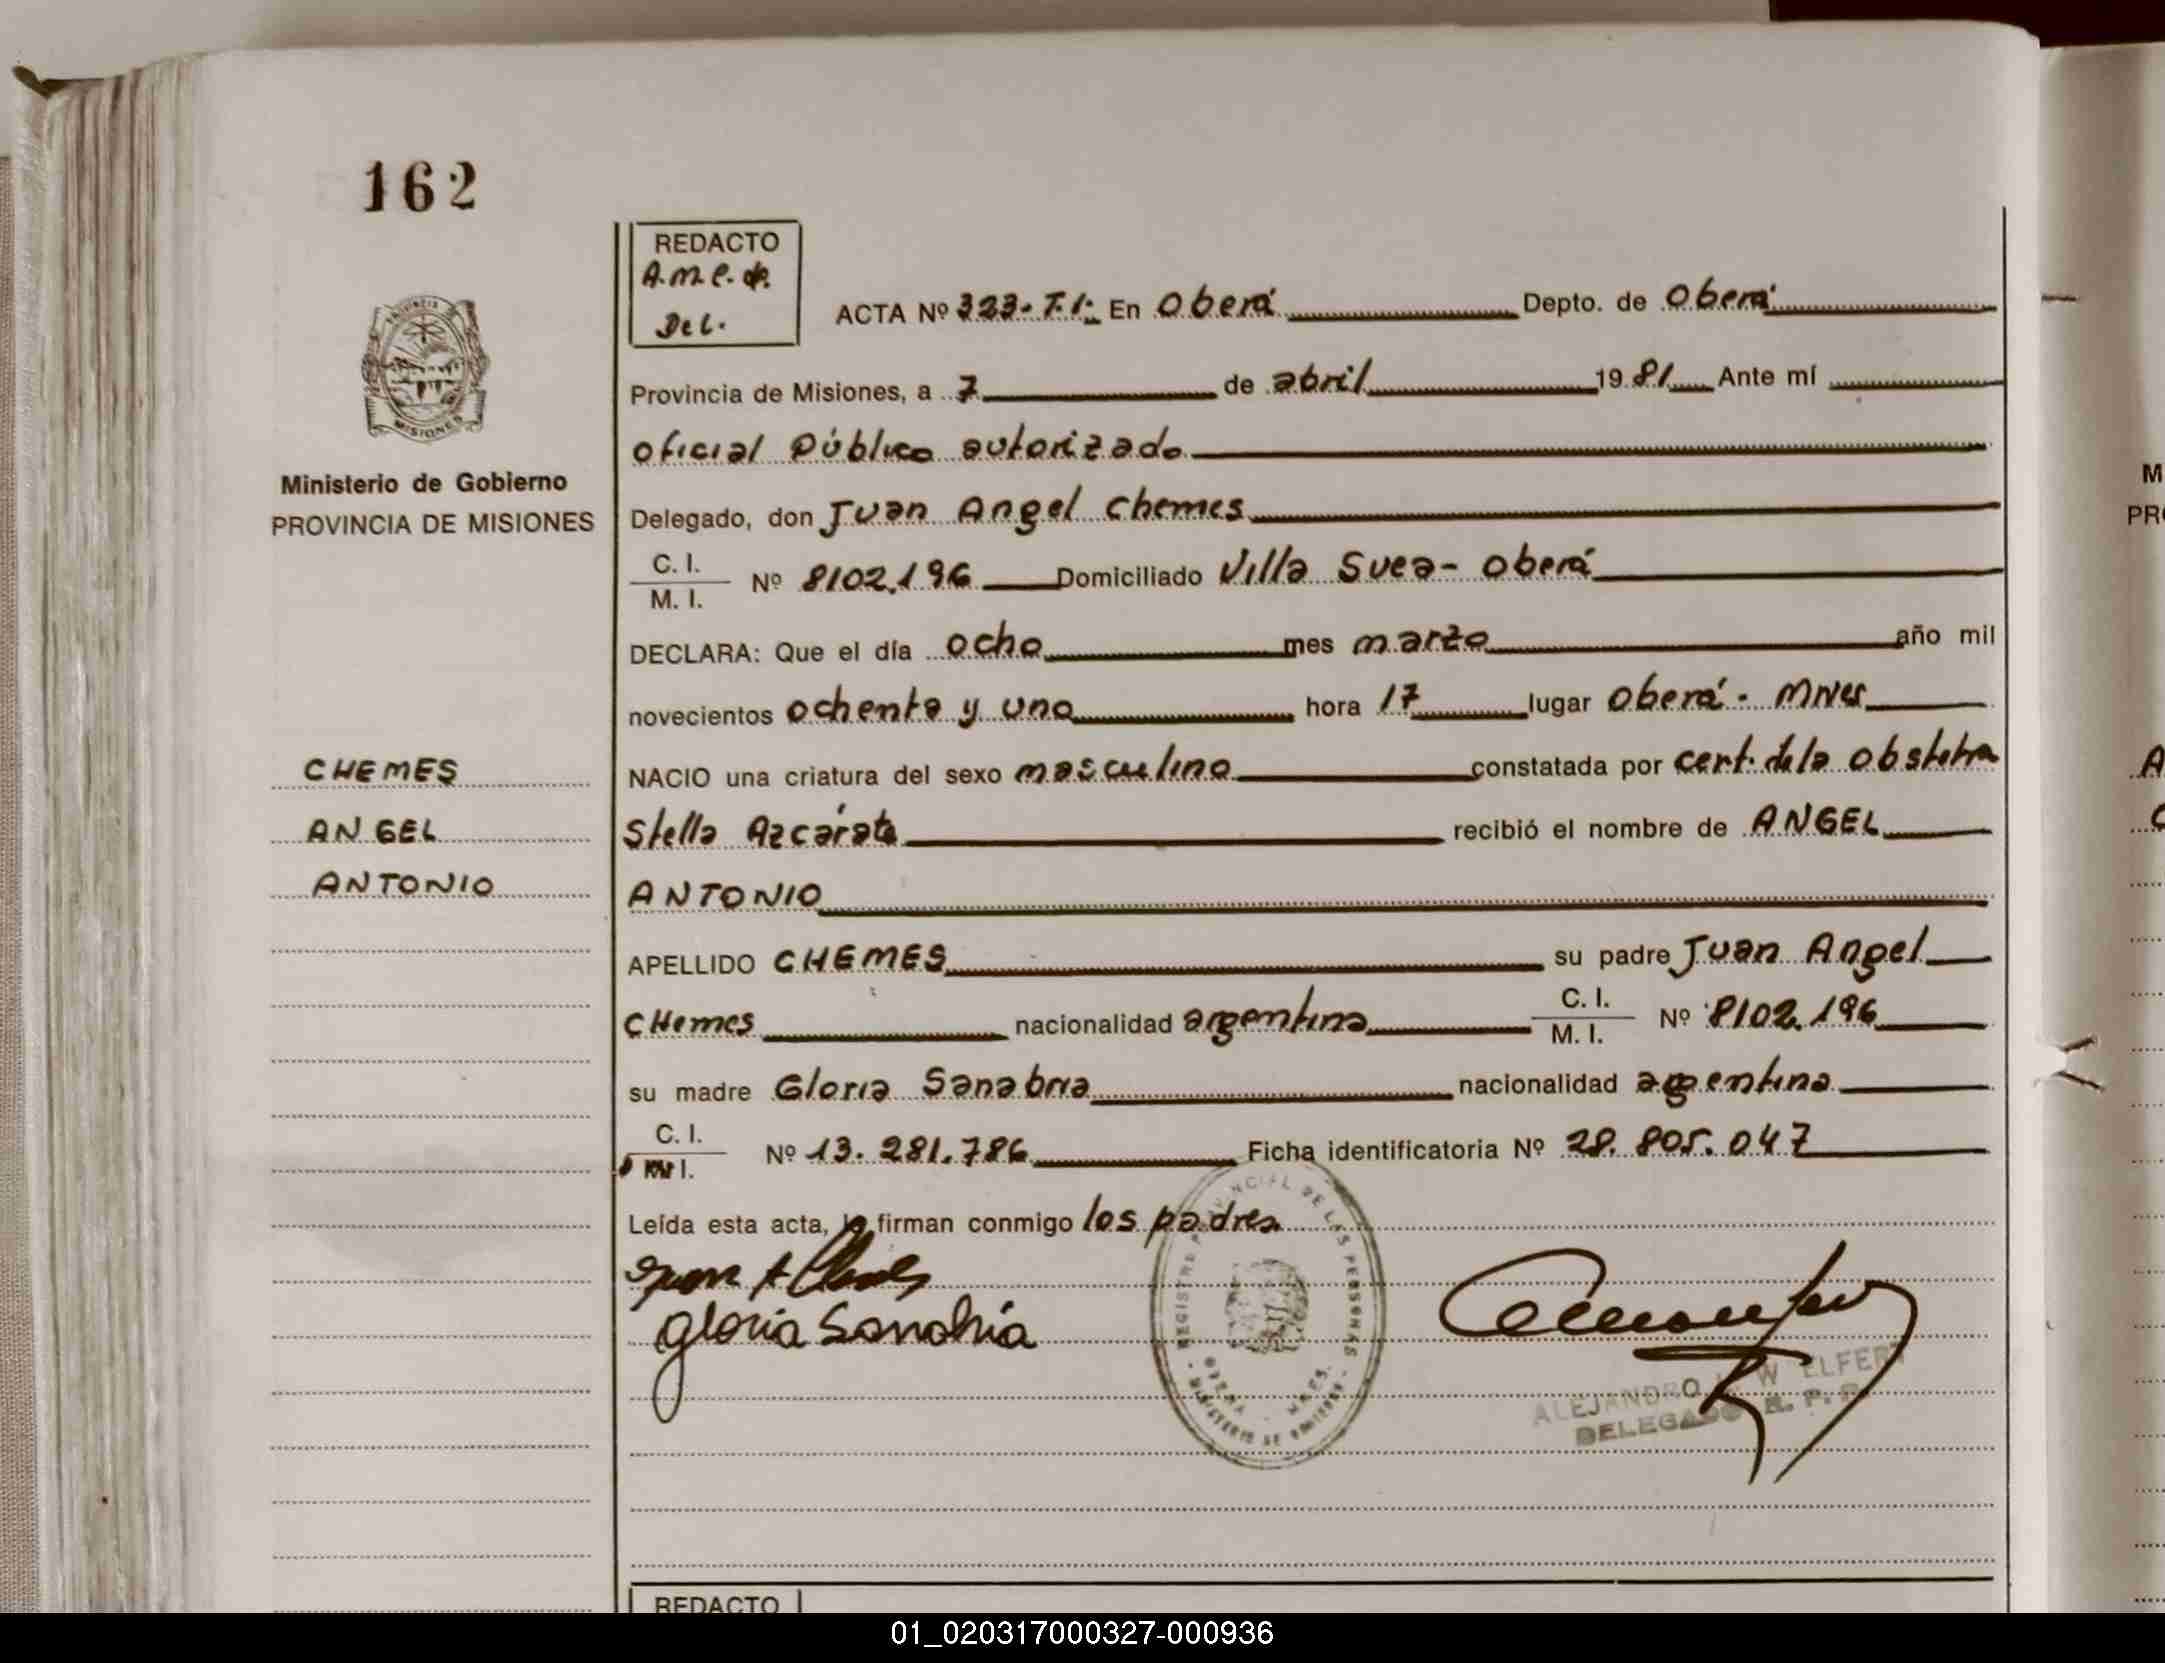 162
REDACTO
A.M.C. de
Del.
ACTA Nº 323-T.I: En Oberá Depto. de Oberá
Provincia de Misiones, a 7 de abril 1981 Ante mí
Oficial Público autorizado
Delegado, don Juan Angel Chemes
C. I.
M. I.
Nº 8102.196 Domiciliado Villa Svea- Oberá
DECLARA: Que el día ocho mes marzo año mil
novecientos ochenta y uno hora 17 lugar Oberá - Mnes
NACIO una criatura del sexo masculino constatada por cert. de la obstetra
Stella Azcárate recibió el nombre de ANGEL
ANTONIO
APELLIDO CHEMES su padre Juan Angel
CHemes nacionalidad argentina C. I. Nº 8102.196
M. I.
su madre Gloria Sanabria nacionalidad argentina
C. I.
M. I.
Nº 13.281.786 Ficha identificatoria Nº 28.805.047
Leída esta acta, la firman conmigo los padres
Juan A Chemes
Gloria Sanabria
REGISTRO PROVINCIAL DE LAS PERSONAS
OBERA - MNES.
MINISTERIO DE GOBIERNO
ALEJANDRO W ELFERT
DELEGADO R. P. P.
REDACTO
PROVINCIA
MISIONES
Ministerio de Gobierno
PROVINCIA DE MISIONES
CHEMES
ANGEL
ANTONIO
M
PRO
A
C
01_020317000327-000936